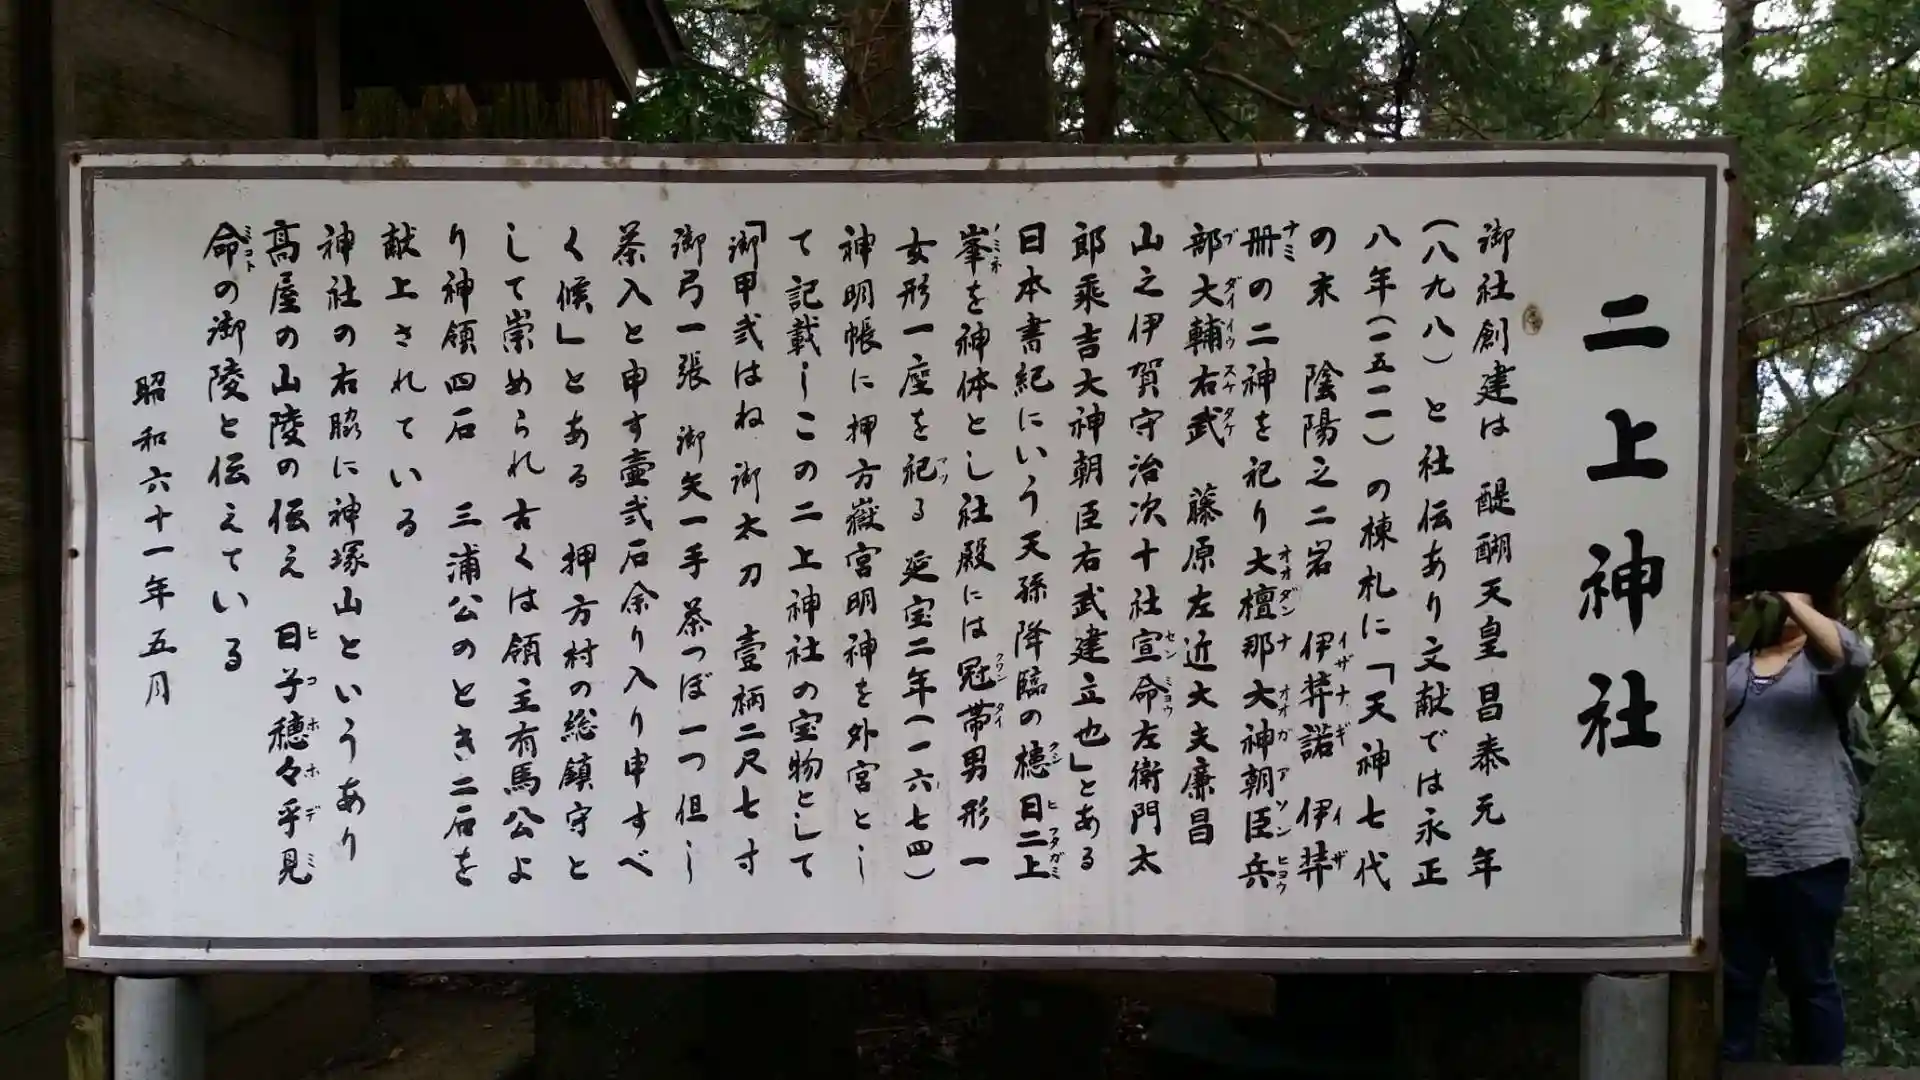 二上神社
御社創建は　醍醐天皇　昌泰元年
（八九八）と社伝あり文献では永正
八年（一五一一）の棟札に「天神七代
の末　陰陽之二岩　伊弉諾　伊弉
冊の二神を祀り大檀那大神朝臣兵
部大輔右武　藤原左近大夫廉昌
山之伊賀守治次十社宣命左衛門太
郎乘吉大神朝臣右武建立也」とある
日本書紀にいう天孫降臨の槵日二上
峯を神体とし社殿には冠帯男形一
女形一座を祀る　延宝二年（一六七四）
神明帳に押方嶽宮明神を外宮とし
て記載しこの二上神社の宝物として
「御甲弐はね　御太刀　壹柄二尺七寸
御弓一張　御矢一手　茶つぼ一つ但し
茶入と申す壷弐石余り入り申すべ
く候」とある　押方村の総鎮守と
して崇められ古くは領主有馬公よ
り神領四石　三浦公のとき二石を
献上されている
神社の右脇に神塚山というあり
高屋の山陵の伝え　日子穂々手見
命の御陵と伝えている
昭和六十一年五月